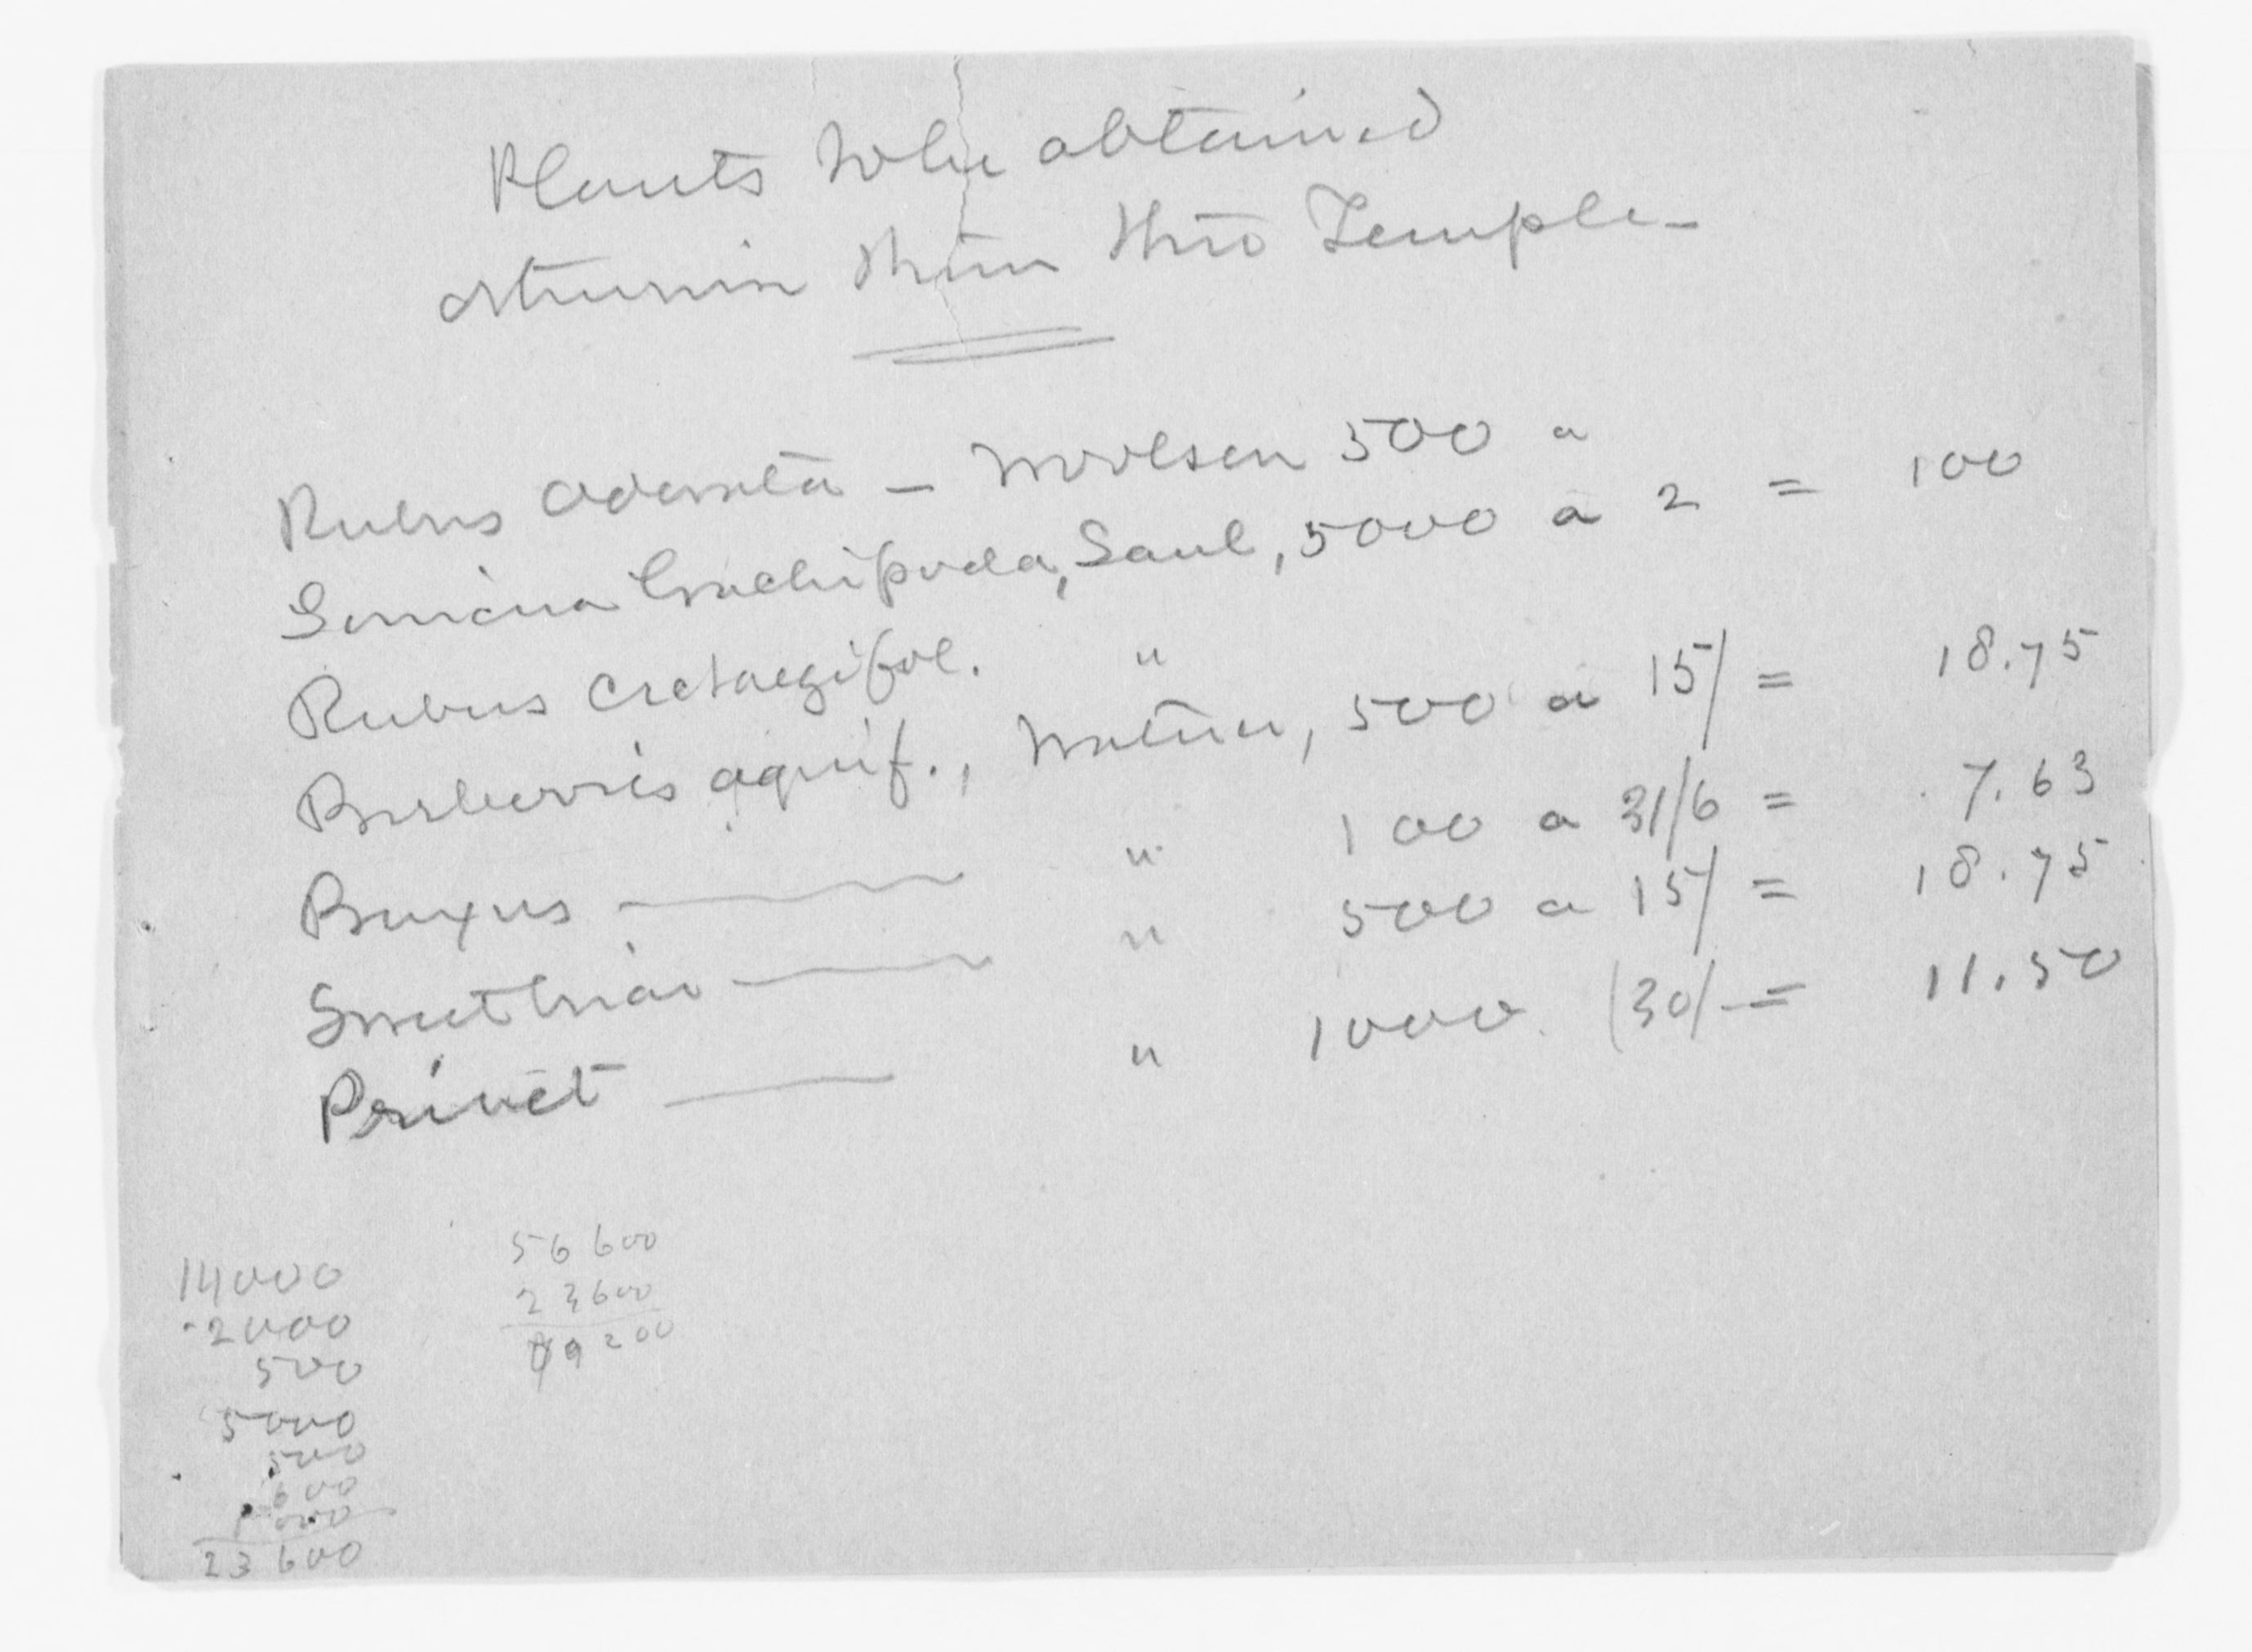 Plants to be obtained
otherwise than thro Temple
Rubus odorata - Woolson 500 a
Lonicera brachipoda, Saul, 5000 a 2 = 100
Rubus crataegifol. "
Berberris aquif., 500 a 15/ = 18.75
Buxus " 100 a 31/6 = 7.63
Sweetbriar " 500 a 15/ = 18.75
Privet " 1000 (30/- = 11.50
14000
2000
500
5000
500
600
1000
23600
56600
23600
79200